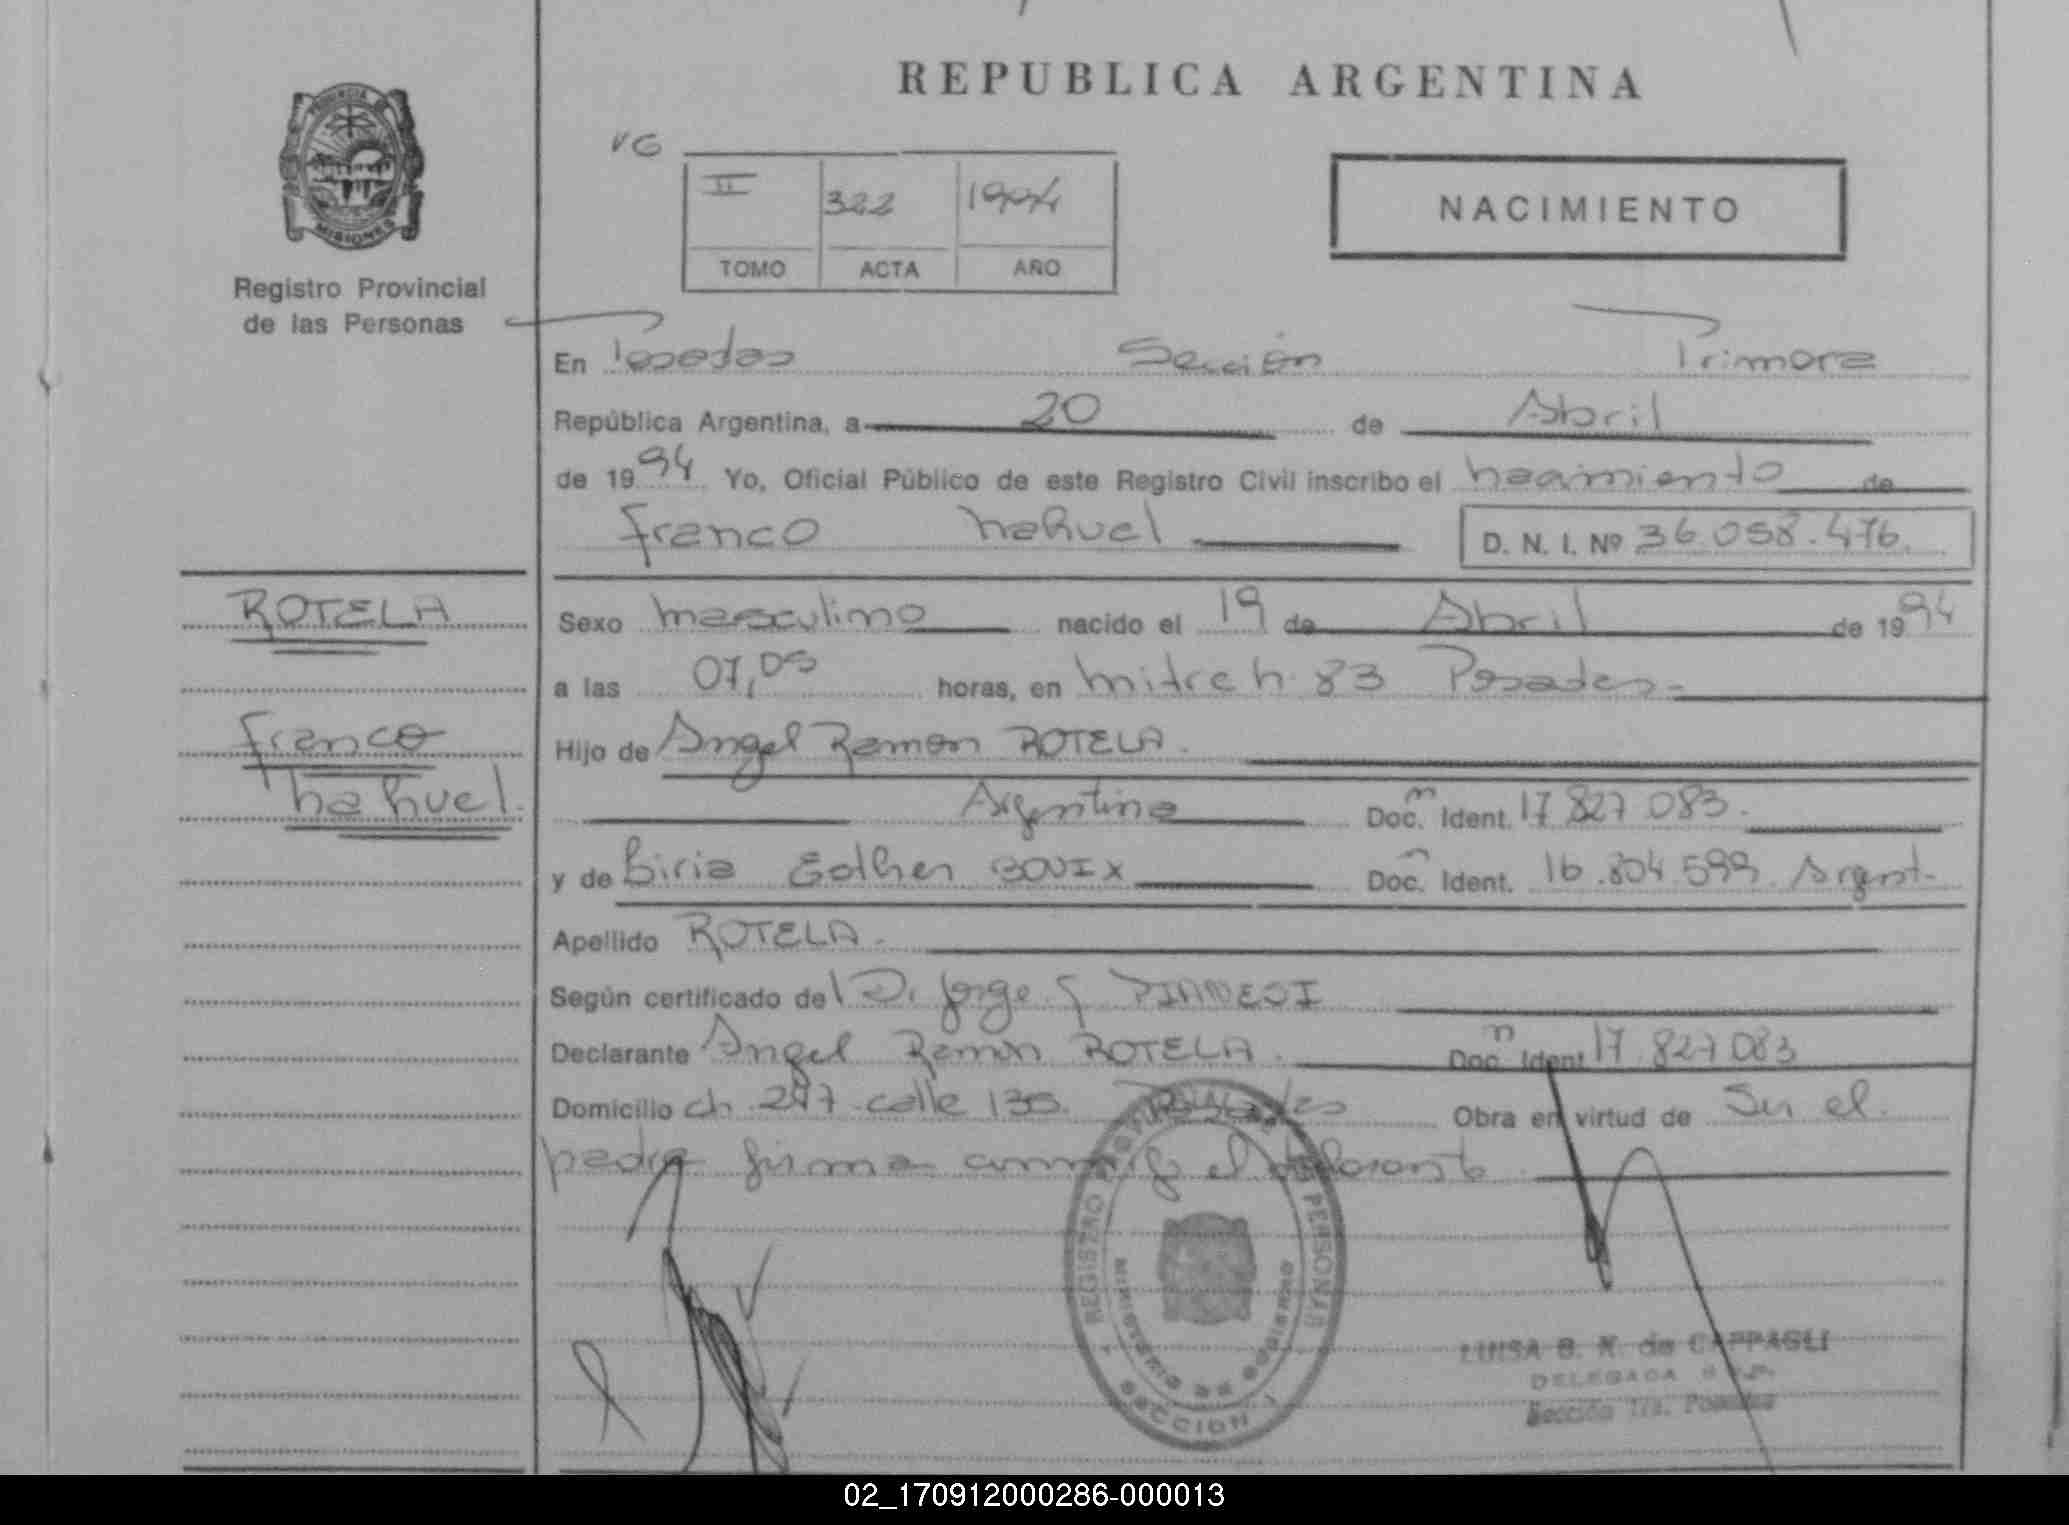 REPUBLICA ARGENTINA
PROVINCIA DE
MISIONES
Registro Provincial
de las Personas
VG
II 322 1994
TOMO ACTA AÑO
NACIMIENTO
En Posadas Sección Primera
República Argentina, a 20 de Abril
de 1994 Yo, Oficial Público de este Registro Civil inscribo el nacimiento de
Franco Nahuel D. N. I. Nº 36.058.476.
ROTELA
Sexo masculino nacido el 19 de Abril de 1994
a las 07,05 horas, en Mitre n. 83 Posadas
Franco
Nahuel.
Hijo de Angel Ramon ROTELA.
Argentina Doc. n Ident. 17 827 083.
y de Esther Doc. n Ident. 16.804.599 Argent.
Apellido ROTELA.
Según certificado del D. Jorge PIANESI
Declarante Angel Ramon ROTELA. Doc. n Ident 17.827 083
Domicilio ch. 247 calle 135. Posadas Obra en virtud de Ser el
padre firma el
REGISTRO PROVINCIAL DE LAS PERSONAS
MINISTERIO DE GOBIERNO
SECCION 1
LUISA B. K. de CAPPAGLI
DELEGADA
Sección 1ra. Posadas
02_170912000286-000013